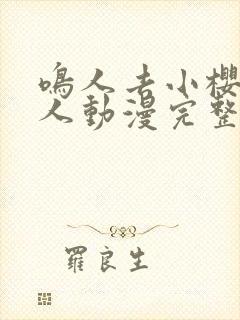 鳴人去小櫻
人動漫完整
羅良生